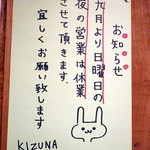 お知らせ
九月より日曜日の
夜の営業は休業
させて頂きます.
宜しくお願い致します
KIZUNA